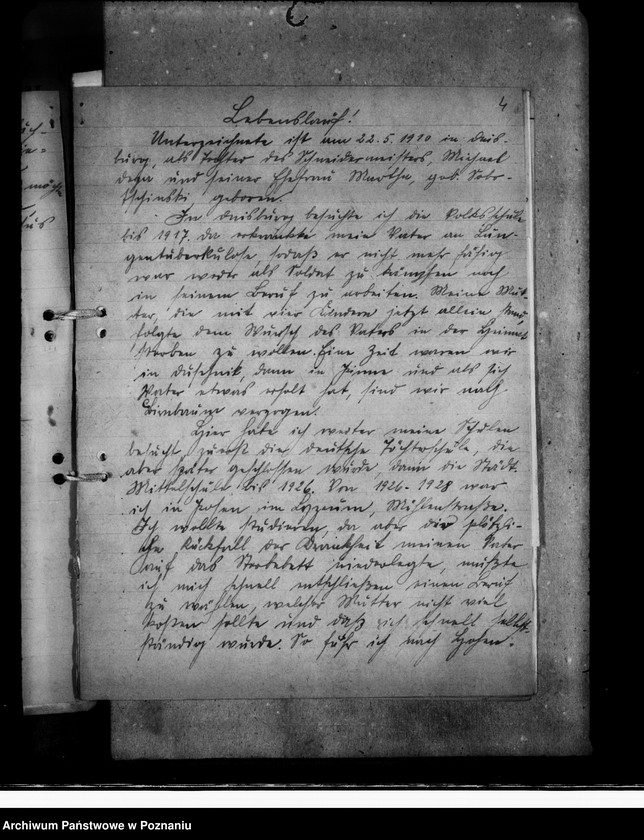 4
Lebenslauf!
Unterzeichnete ist am 22.5.1910 in Duis-
burg, als Tochter des Schneidermeisters, Michael
und seiner Ehefrau Martha, geb.
geboren.
In Duisburg besuchte ich die Volksschule
bis 1917. Da erkrankte mein Vater an Lun-
gentuberkulose, sodaß er nicht mehr fähig
war weder als Soldat zu kämpfen noch
in seinem Beruf zu arbeiten. Meine Mut-
ter, die mit vier Kindern jetzt allein stand,
folgte dem Wunsch des Vaters in der Heimat
sterben zu wollen. Eine Zeit waren wir
in Duschnik, dann in Pinne und als sich
Vater etwas erholt hat, sind wir nach
Birnbaum verzogen.
Hier habe ich weiter meine Schulen
besucht, zuerst die deutsche Töchterschule, die
aber später geschlossen wurde, dann die Städt.
Mittelschule bis 1926. Von 1926-1928 war
ich in Posen im Lyzeum, Mühlenstraße.
Ich wollte studieren, da aber der plötzli-
che Rückfall der Krankheit meinen Vater
auf das Sterbebett niederlegte, mußte
ich mich schnell entschließen einen Beruf
zu wählen, welcher Mutter nicht viel
kosten sollte und daß ich schnell selbst-
ständig wurde. So fuhr ich nach
Archiwum Państwowe w Poznaniu